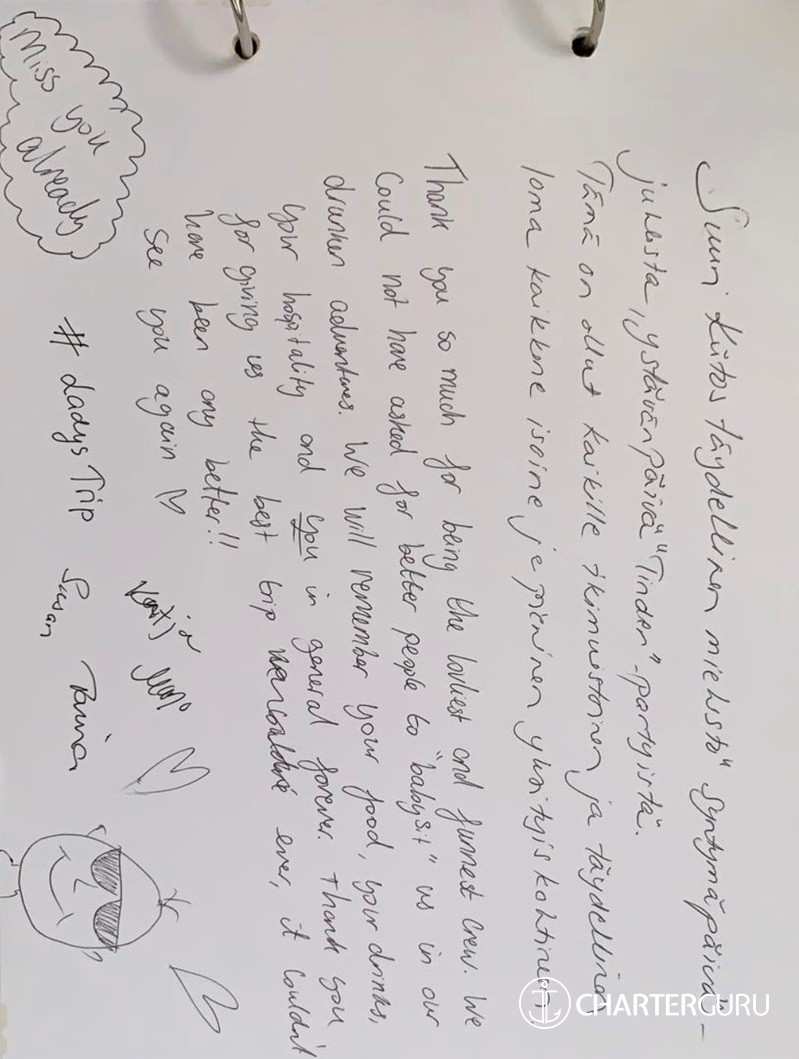 Suuri kiitos täydellinen miehistö" syntymäpäivä-
juhlista, ystävänpäivä "Tinder"-partyistä".
Tämä on ollut kaikille ikimuistoinen ja täydellinen
loma kaikkine isoine ja pieninen yksityiskohtineen.
Thank you so much for being the lovliest and funnest crew. We
Could not have asked for better people to "babysit" us in our
drunken adventures. We will remember your food, your drinks,
your hospitality and you in general forever. Thank you
for giving us the best trip ever, it couldn't
have been any better!!
See you again ♡
Katja
#LadysTrip Susan
Miss you
already
CHARTERGURU